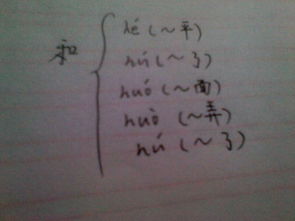 和
hé (～平)
hú (～了)
huó (～面)
huò (～弄)
hú (～了)